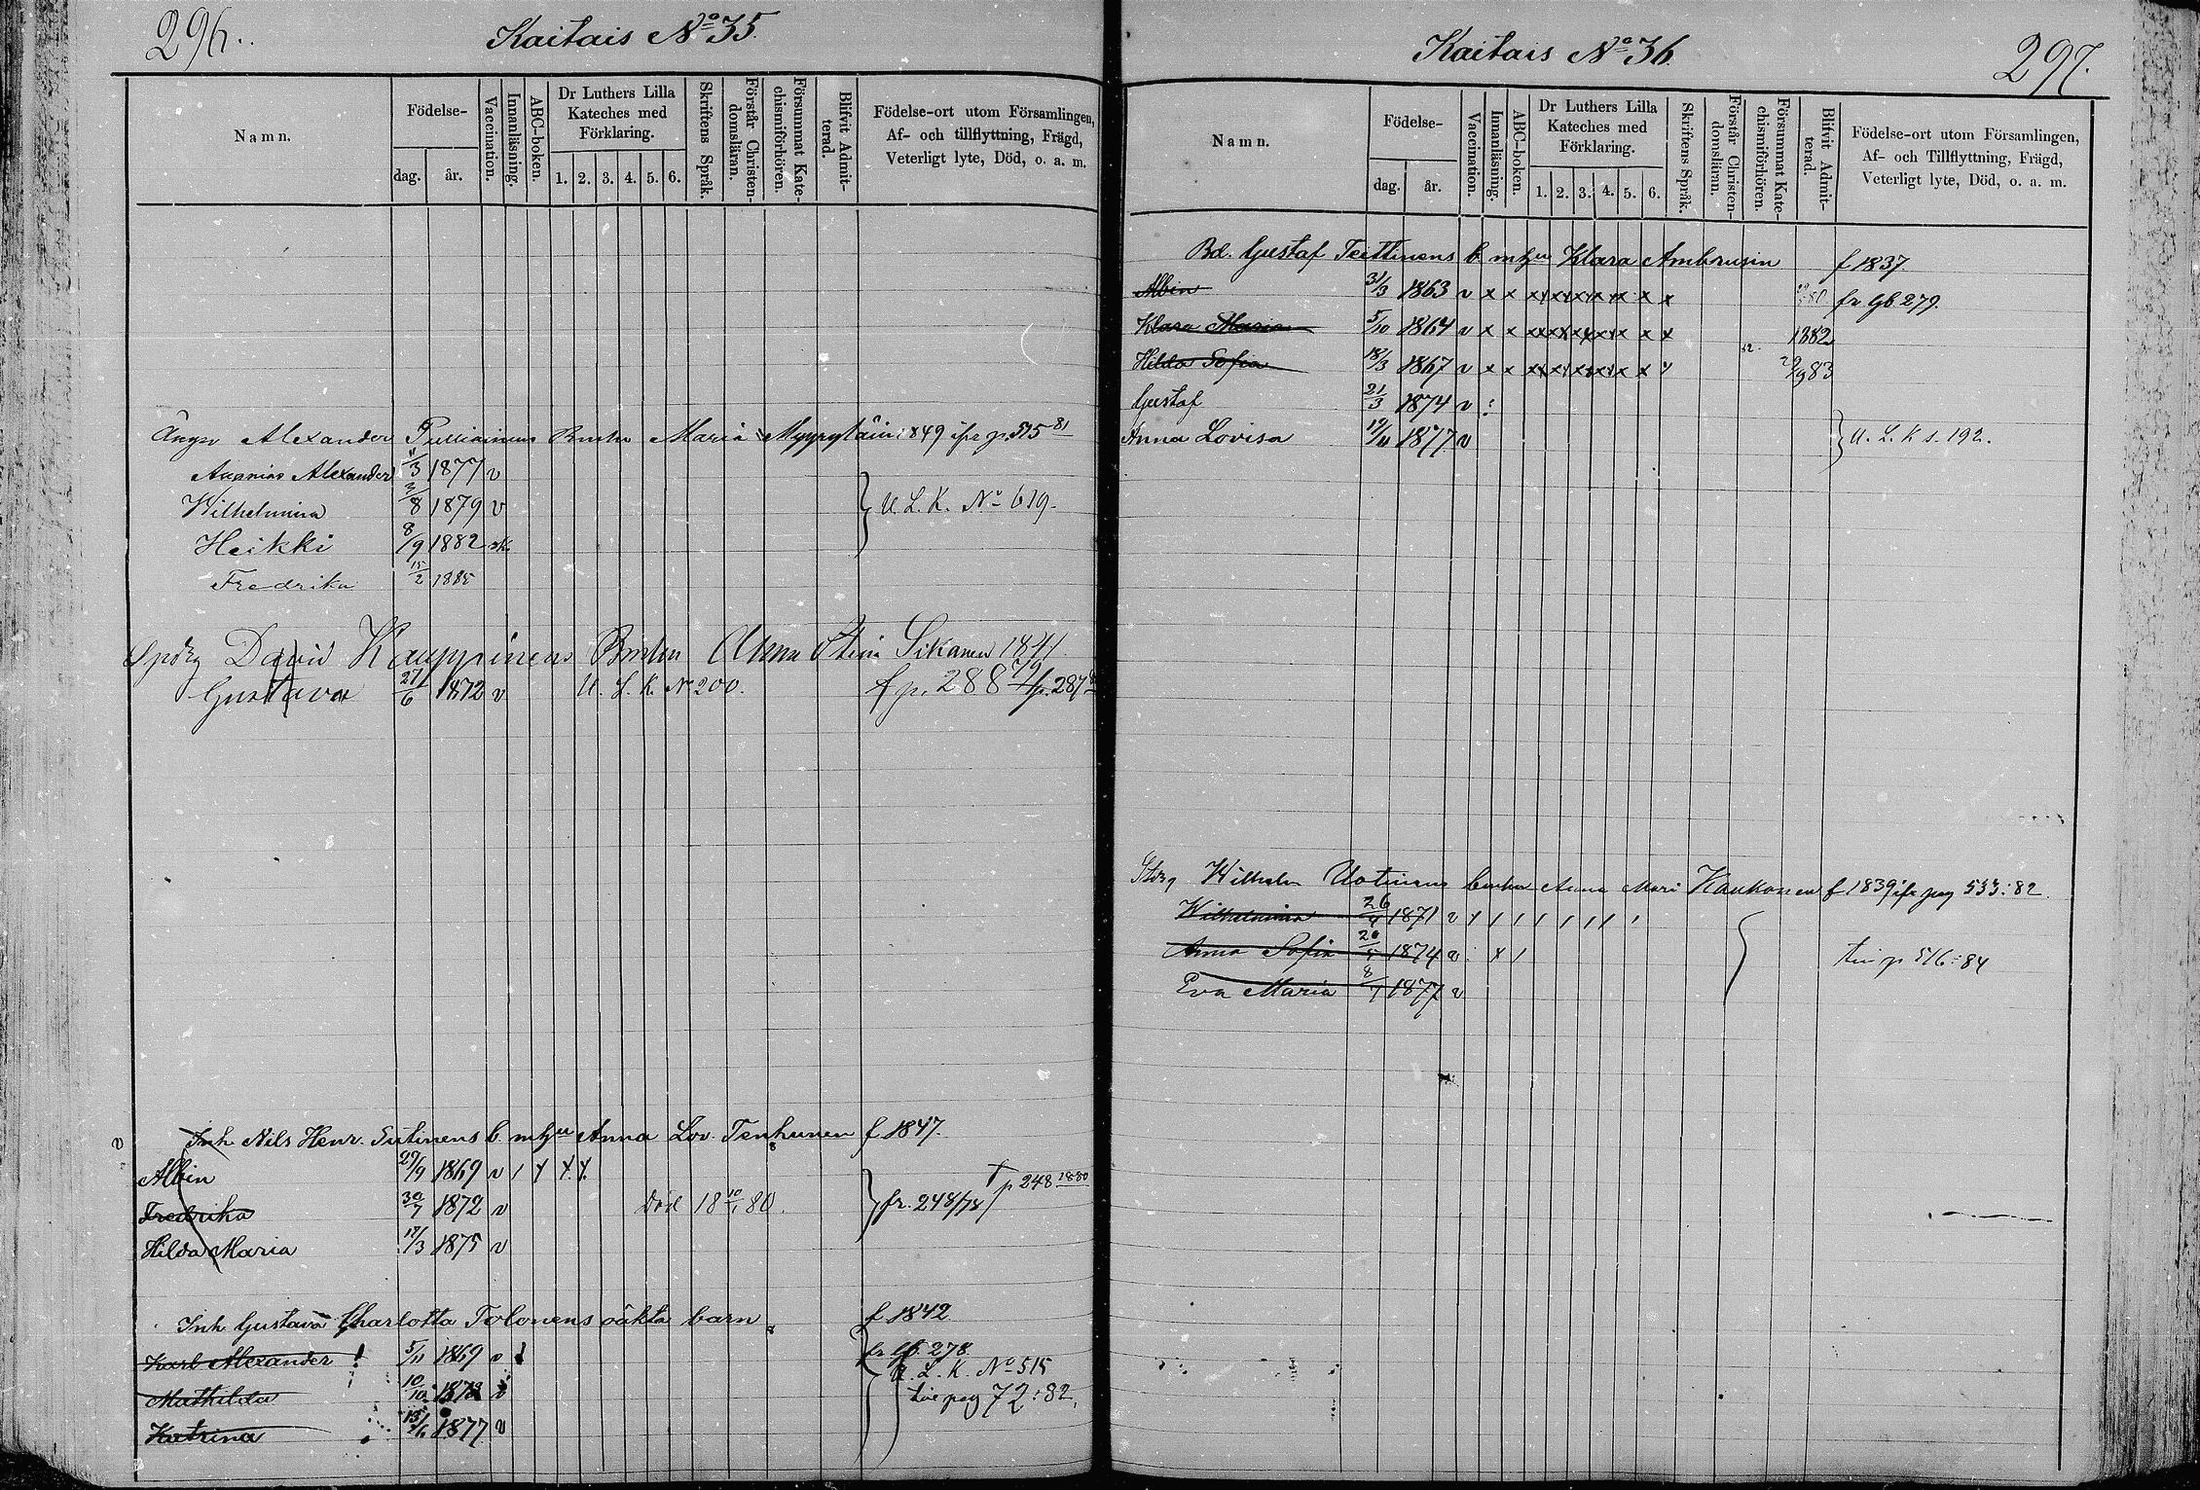 296.
Kaitais No 35.
Namn.
Födelse-
dag.
år.
Vaccination.
Innanläsning.
ABC-boken.
Dr Luthers Lilla Kateches med Förklaring.
1. 2. 3. 4. 5. 6.
Skriftens Språk.
Förstår Christen-domsläran.
Försummat Kate-chismiförhören.
Blifvit Admit-terad.
Födelse-ort utom Församlingen, Af- och tillflyttning, Frägd, Veterligt lyte, Död, o. a. m.
Alexander Pulliainens Maria 1849 p. 515 81
Alexander /3 1877 v
Wilhelmina 3/8 1879 v
U. L. K. No 619.
Heikki 8/9 1882
Fredrika 15/2 1885
David Kauppinens Anna Stina Sikanen 1841.
Gustava 27/6 1872 v U. L. K. No 200. f p. 288 79
Inh Nils Henr. Sutinens b. m hu Anna Lov. Tenhunen f 1847.
Albin 29/9 1869 v
p 248 1880
Fredrika 30/7 1872 v Död 18 10/1 80. fr. 248/78
Hilda Maria 17/3 1875 v
Inh. Gustava Charlotta Tolonens oäkta barn f 1842
Karl Alexander 5/11 1869 v fr gb. 278.
U. L. K. No 515
Mathilda 10/10 1872 v pag 72:82.
Katrina 1877 v
297.
Kaitais No 36.
Namn.
Födelse-
dag.
år.
Vaccination.
Innanläsning.
ABC-boken.
Dr Luthers Lilla Kateches med Förklaring.
1. 2. 3. 4. 5. 6.
Skriftens Språk.
Förstår Christen-domsläran.
Försummat Kate-chismiförhören.
Blifvit Admit-terad.
Födelse-ort utom Församlingen, Af- och Tillflyttning, Frägd, Veterligt lyte, Död, o. a. m.
Bd. Gustaf Teittinens b. m hu Klara Ambrusin f 1837.
Albin 31/3 1863 v x x fr gb 279.
Klara Maria 5/10 1864 v x x 1882
Hilda Sofia 18/3 1867 v x x 83
Gustaf 21/3 1874 v
Anna Lovisa 1877 v U. L. K s. 192.
Wilhelm Uotinens Anna Mari Kaukonen f 1839 pag 533:82
Wilhelmina 26 1871 v
Anna Sofia 20 1874 v
p 516:84
Eva Maria 8 1877 v